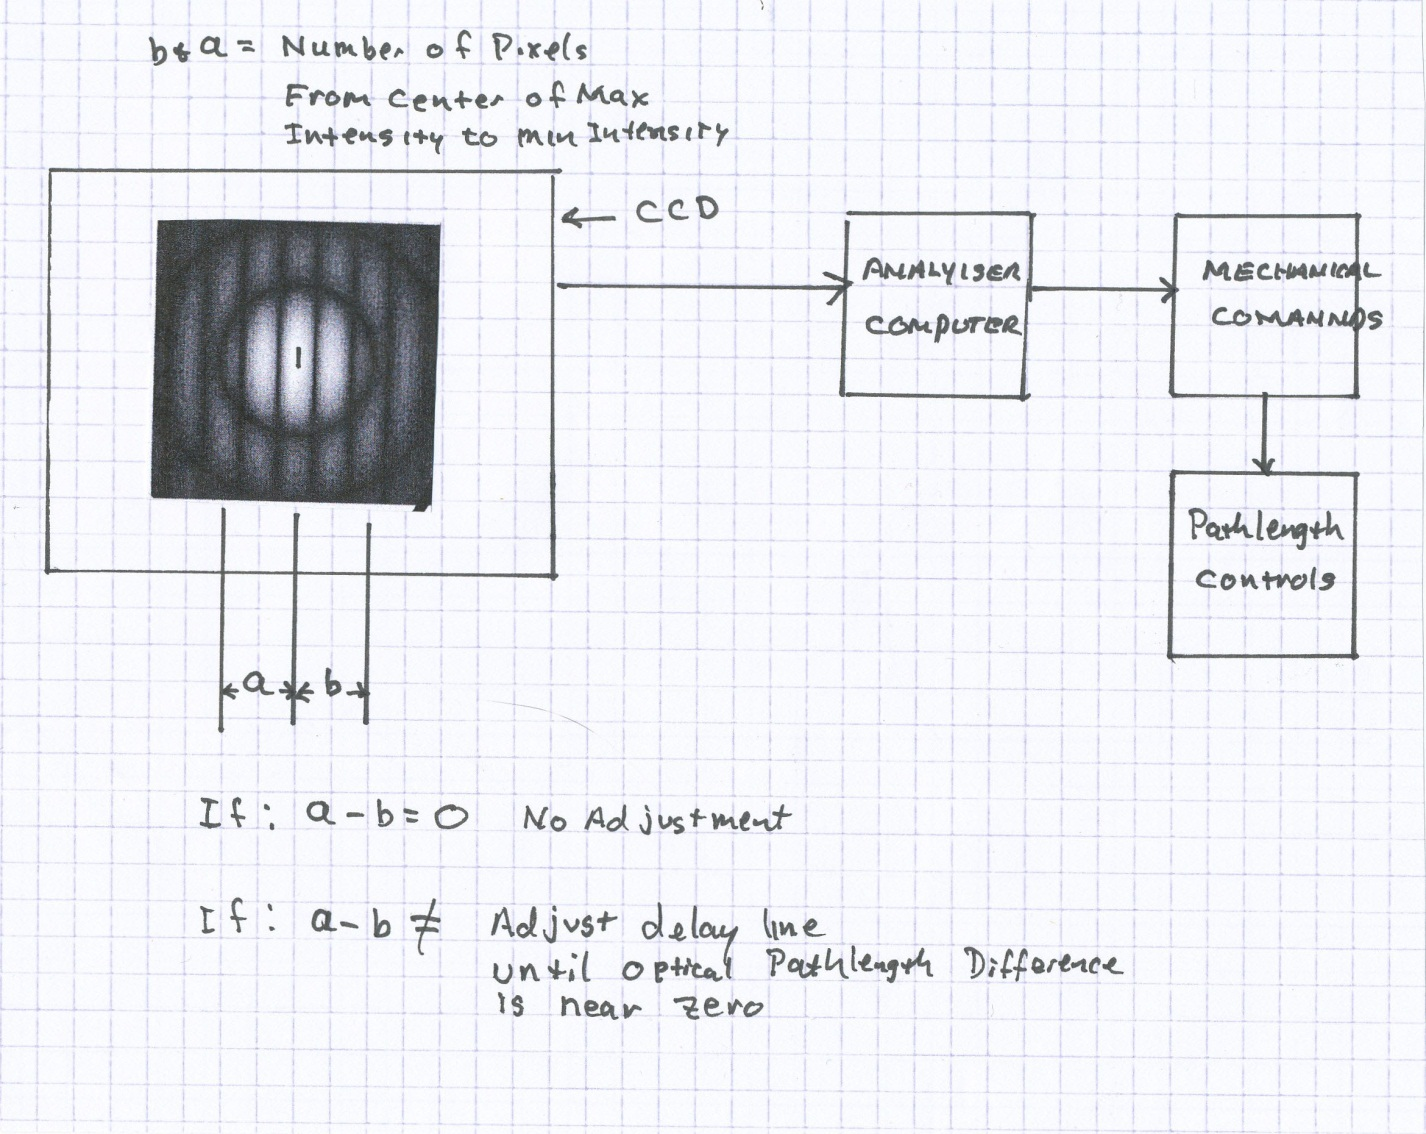 b & a = Number of Pixels
From Center of Max
Intensity to min Intensity
CCD
ANALYISER
COMPUTER
MECHANICAL
COMANNDS
Pathlength
Controls
a b
If: a - b = 0 No Adjustment
If: a - b ≠ Adjust delay line
until optical Pathlength Difference
is near zero